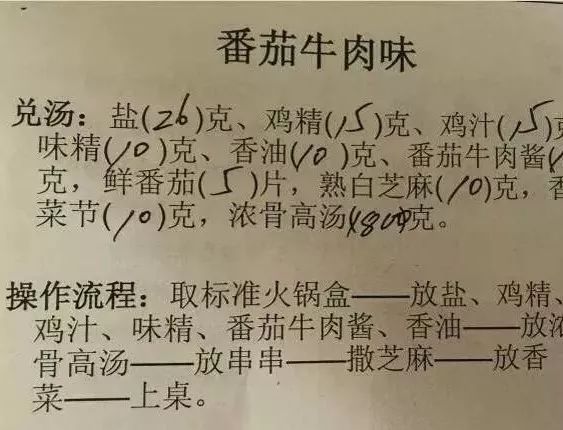 番茄牛肉味
兑汤：盐(26)克、鸡精(15)克、鸡汁(15)克
味精(10)克、香油(10)克、番茄牛肉酱(
克，鲜番茄(5)片，熟白芝麻(10)克，香
菜节(10)克，浓骨高汤(4800)克。
操作流程：取标准火锅盒——放盐、鸡精、
鸡汁、味精、番茄牛肉酱、香油——放浓
骨高汤——放串串——撒芝麻——放香
菜——上桌。